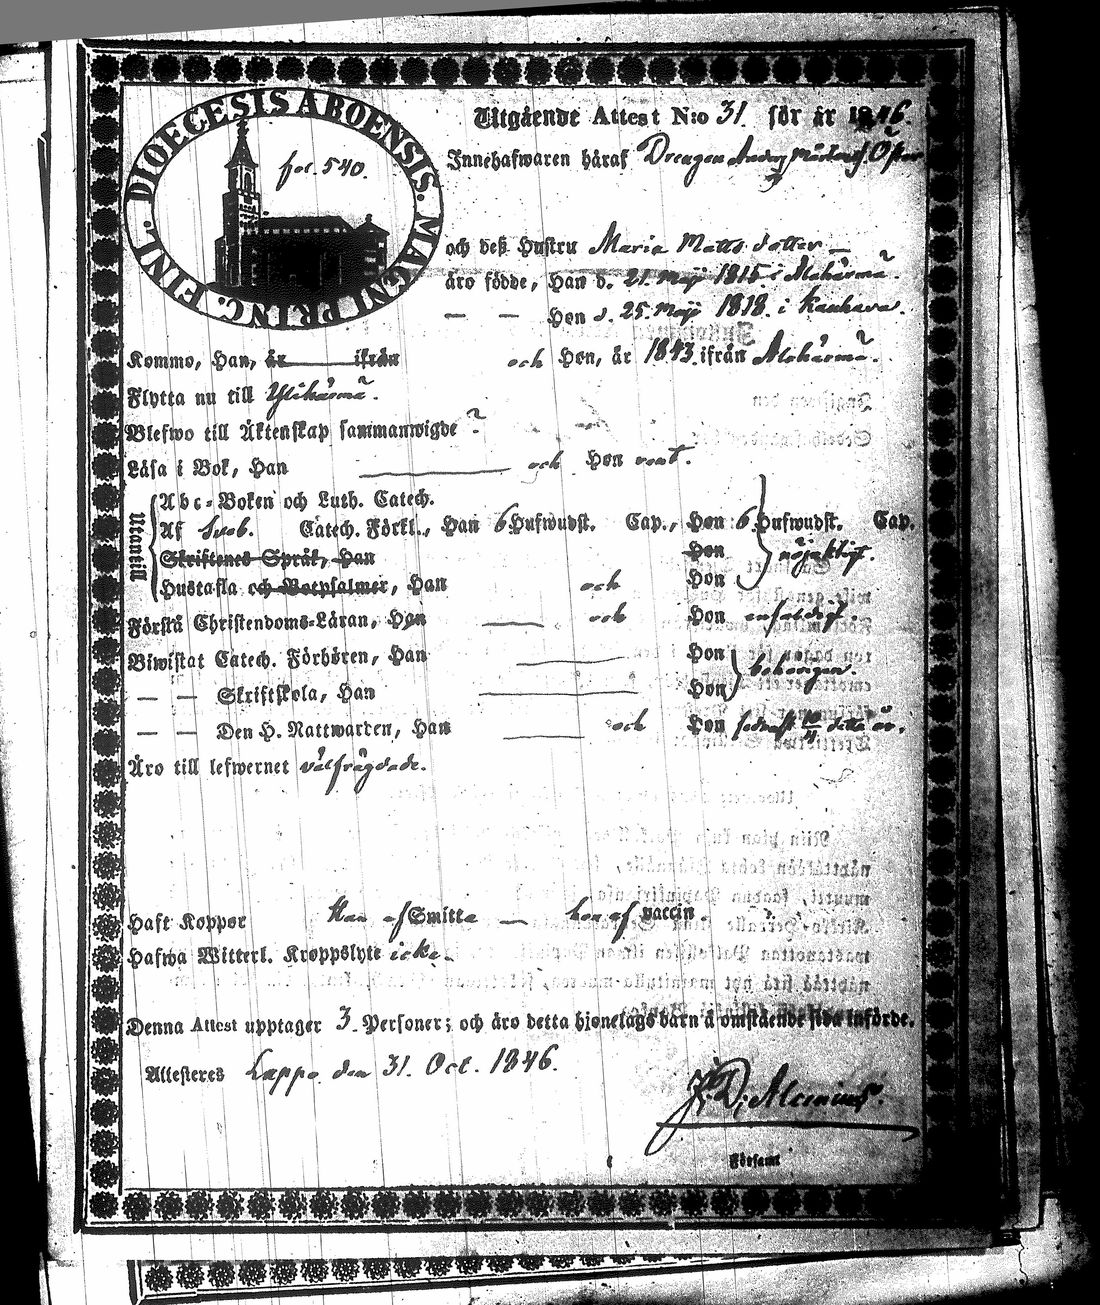 DIOECESIS ABOENSIS. MAGNI PRINC. FINL.
fol. 540.
Utgående Attest N:o 31 för år 1846.
Innehafwaren häraf Drengen
och deß Hustru Maria Matts dotter —
äro födde, Han d. 21 Maji 1815 i Alahärmä.
— — Hon d. 25 Maji 1818. i Kauhava.
Kommo, Han, år ifrån och Hon, år 1843 ifrån Alahärmä.
Flytta nu till Ylihärmä.
Blefwo till Äktenskap sammanwigde ?
Läsa i Bok, Han — och Hon rent.
Utantill
Abc-Boken och Luth. Catech.
Af Sveb. Catech. Förkl., Han 6 Hufwudst. Cap., Hon 6 Hufwudst. Cap.
Skriftenes Språk, Han Hon nöjaktigt.
Hustafla och Botpsalmer, Han och Hon
Förstå Christendoms-Läran, Han — och Hon enfaldigt
Biwistat Catech. Förhören, Han — Hon behörigen.
— — Skriftskola, Han — Hon
— — Den H. Nattwarden, Han — och Hon sednast detta år.
Äro till lefwernet välfrägdade.
Haft Koppor Han af Smitta — hon af vaccin.
Hafwa Witterl. Kroppslyte icke
Denna Attest upptager 3. Personer; och äro detta hjonelags barn å omstående sida införde.
Attesteres Lappo den 31. Oct. 1846.
J. D. Alcenius.
Församl